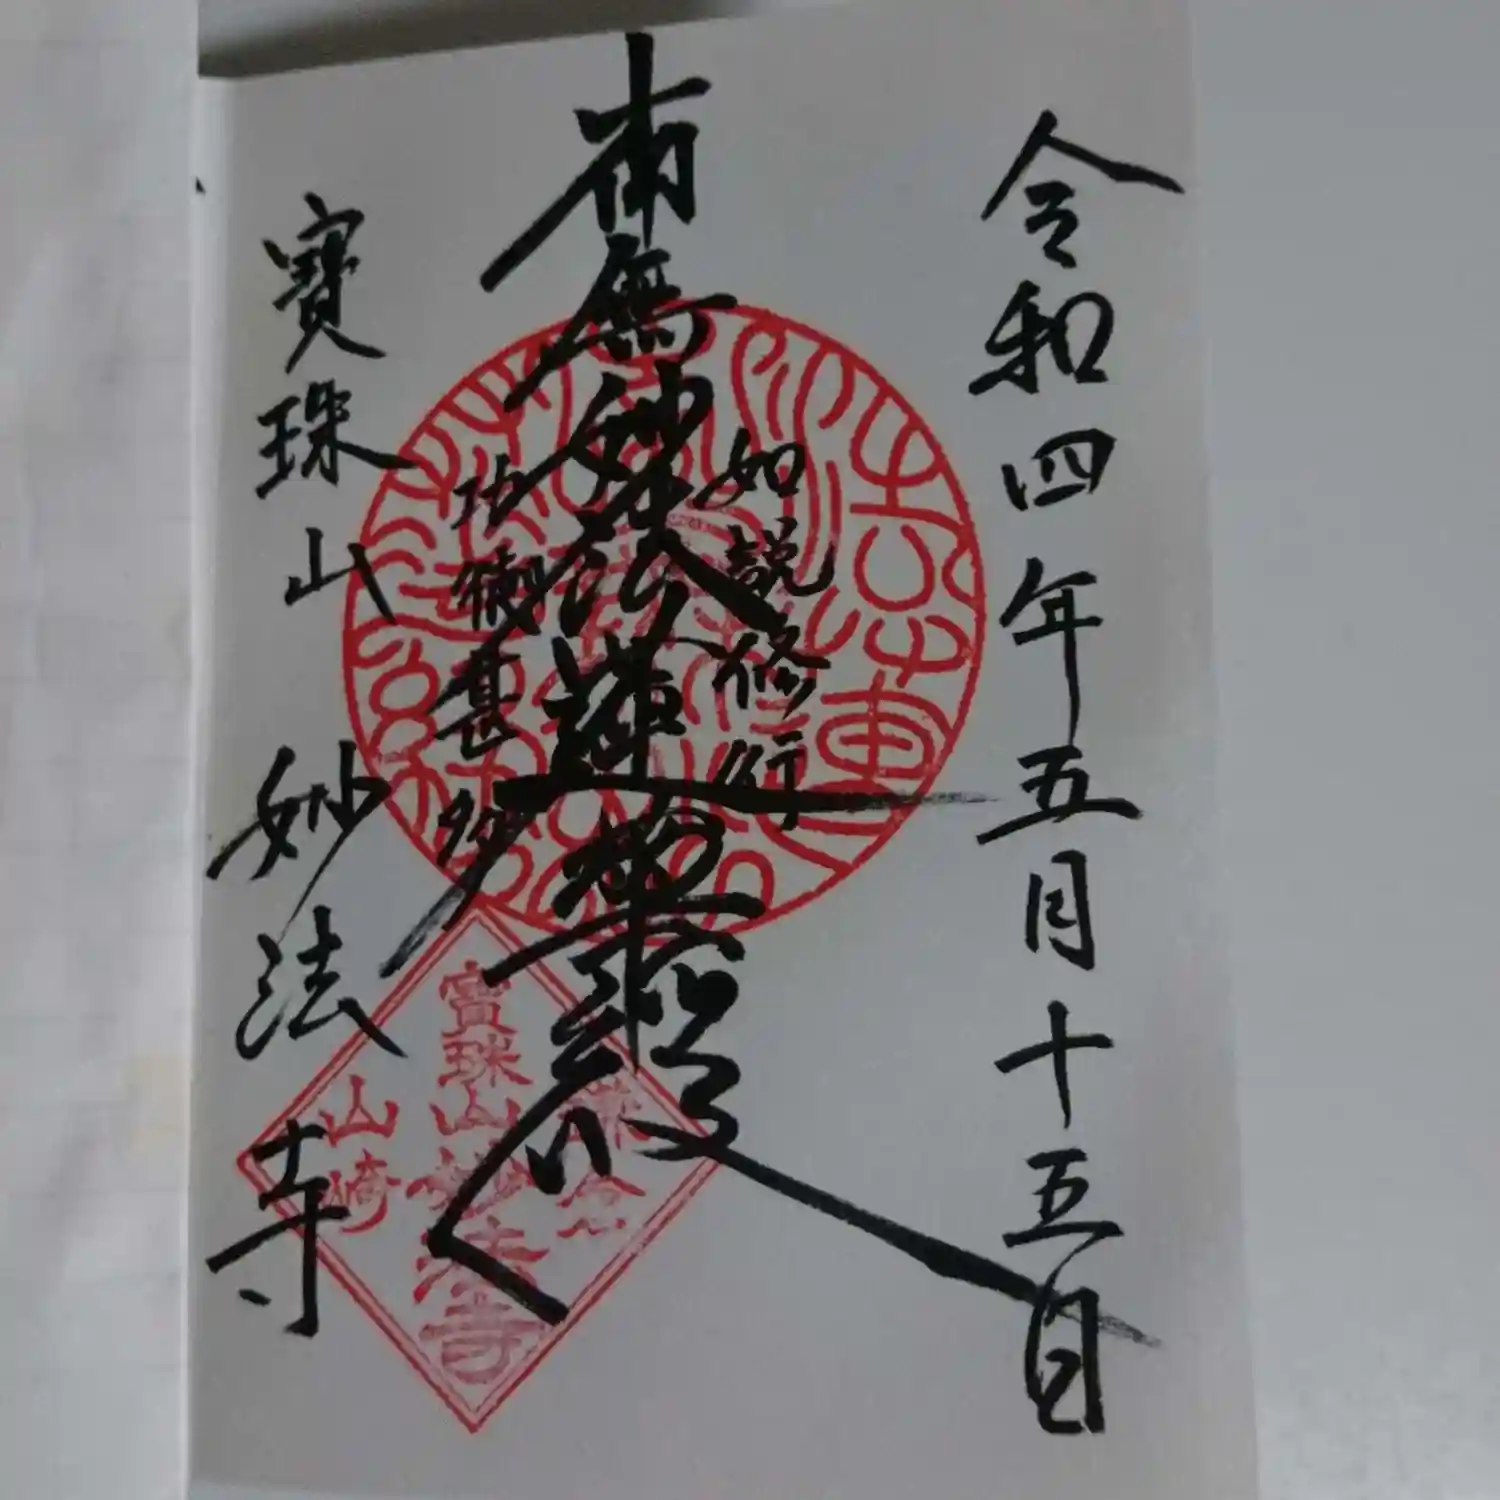 令和四年五月十五日
如説修行
南無妙法蓮華経
功徳甚多
寶珠山 妙法寺
寶珠山妙法寺
山崎